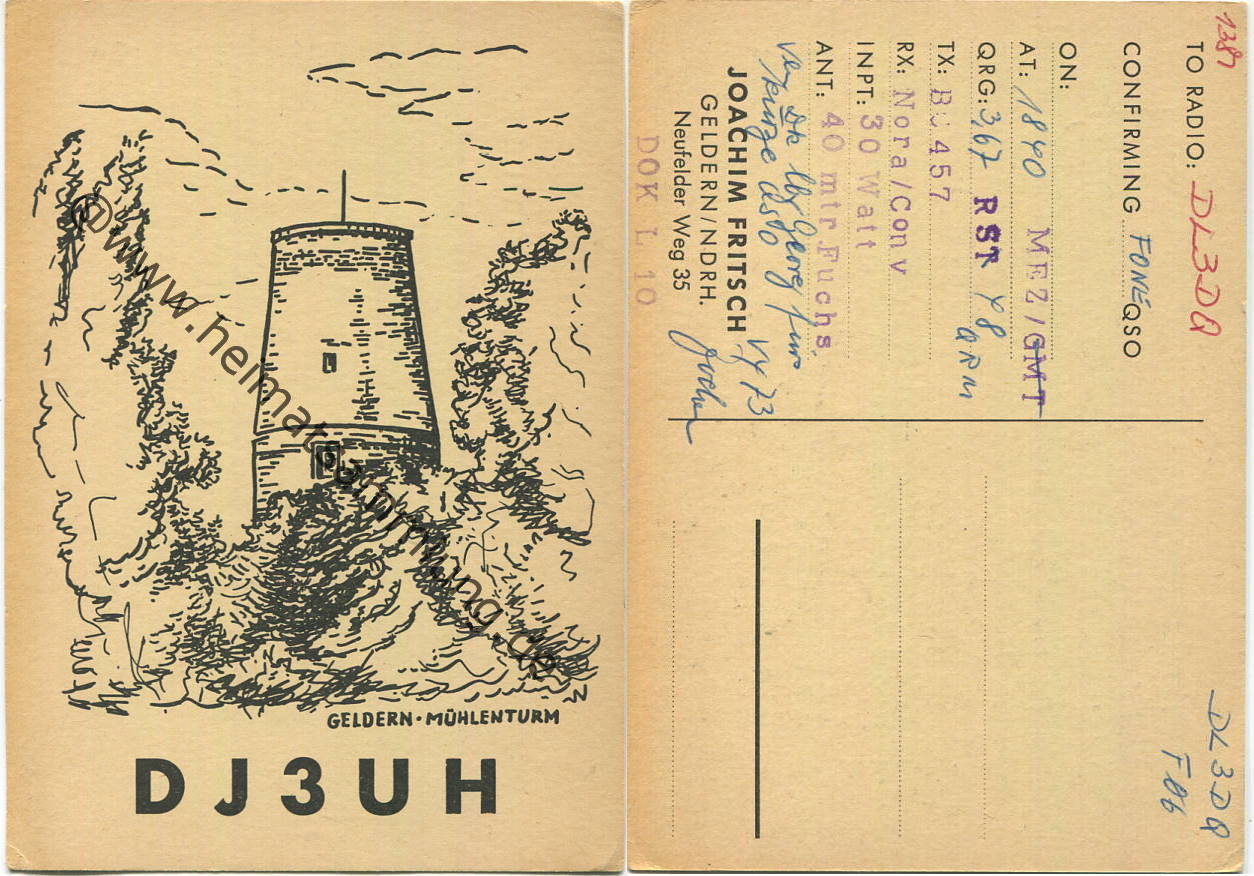 GELDERN · MÜHLENTURM
DJ3UH
@www.heimatsammlung.de
TO RADIO: DL3DQ
CONFIRMING FONE QSO
ON:
AT: 1840 MEZ/GMT
QRG: 3,67 RST 48 QRM
TX: BC 457
RX: Nora/Conv
INPT: 30 Watt
ANT: 40 mtr. Fuchs
Georg für
kurze QSO vy 73
JOACHIM FRITSCH
GELDERN/NDRH.
Neufelder Weg 35
DOK L 10
DL3DQ
F06